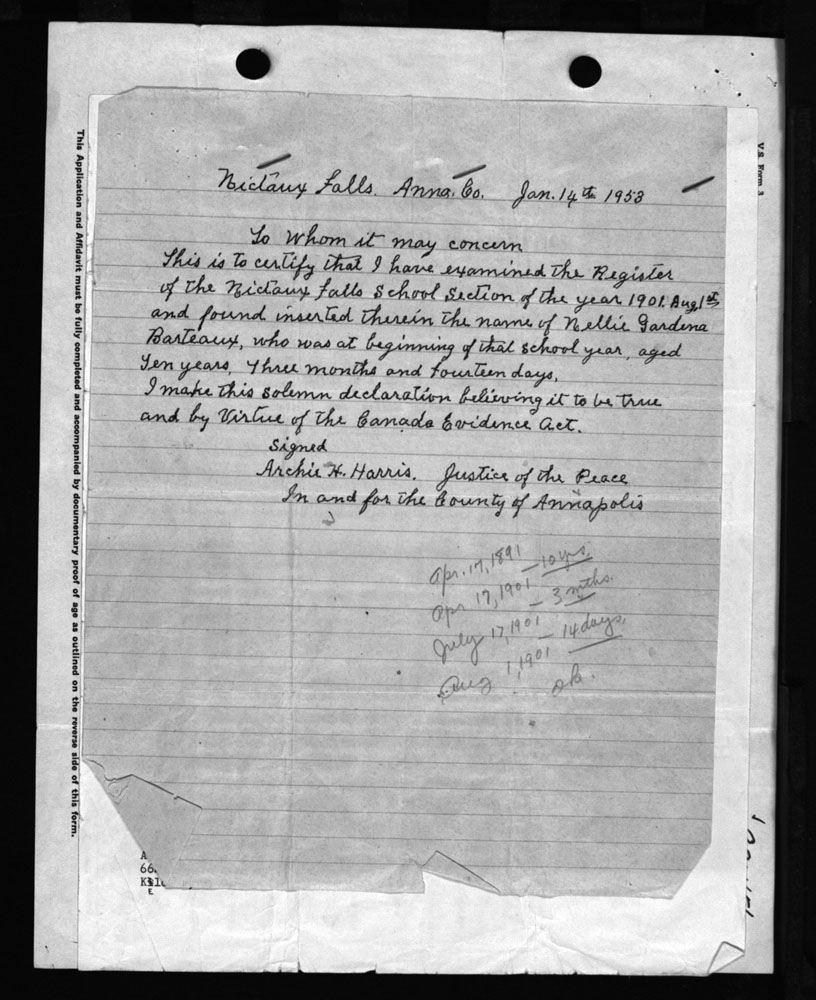 Nictaux Falls. Anna. Co. Jan. 14th 1953
To Whom it may concern
This is to certify that I have examined the Register
of the Nictaux Falls School Section of the year 1901. Aug. 1st
and found inserted therein the name of Nellie Gardena
Barteaux, who was at beginning of that school year, aged
Ten years, Three months and Fourteen days.
I make this solemn declaration believing it to be true
and by Virtue of the Canada Evidence Act.
Signed
Archie H. Harris. Justice of the Peace
In and for the County of Annapolis
Apr. 17, 1891 — 10 yrs.
Apr 17, 1901 — 3 mths.
July 17, 1901 — 14 days,
Aug 1, 1901 ok.
This Application and Affidavit must be fully completed and accompanied by documentary proof of age as outlined on the reverse side of this form.
V.S. Form 3
A
66